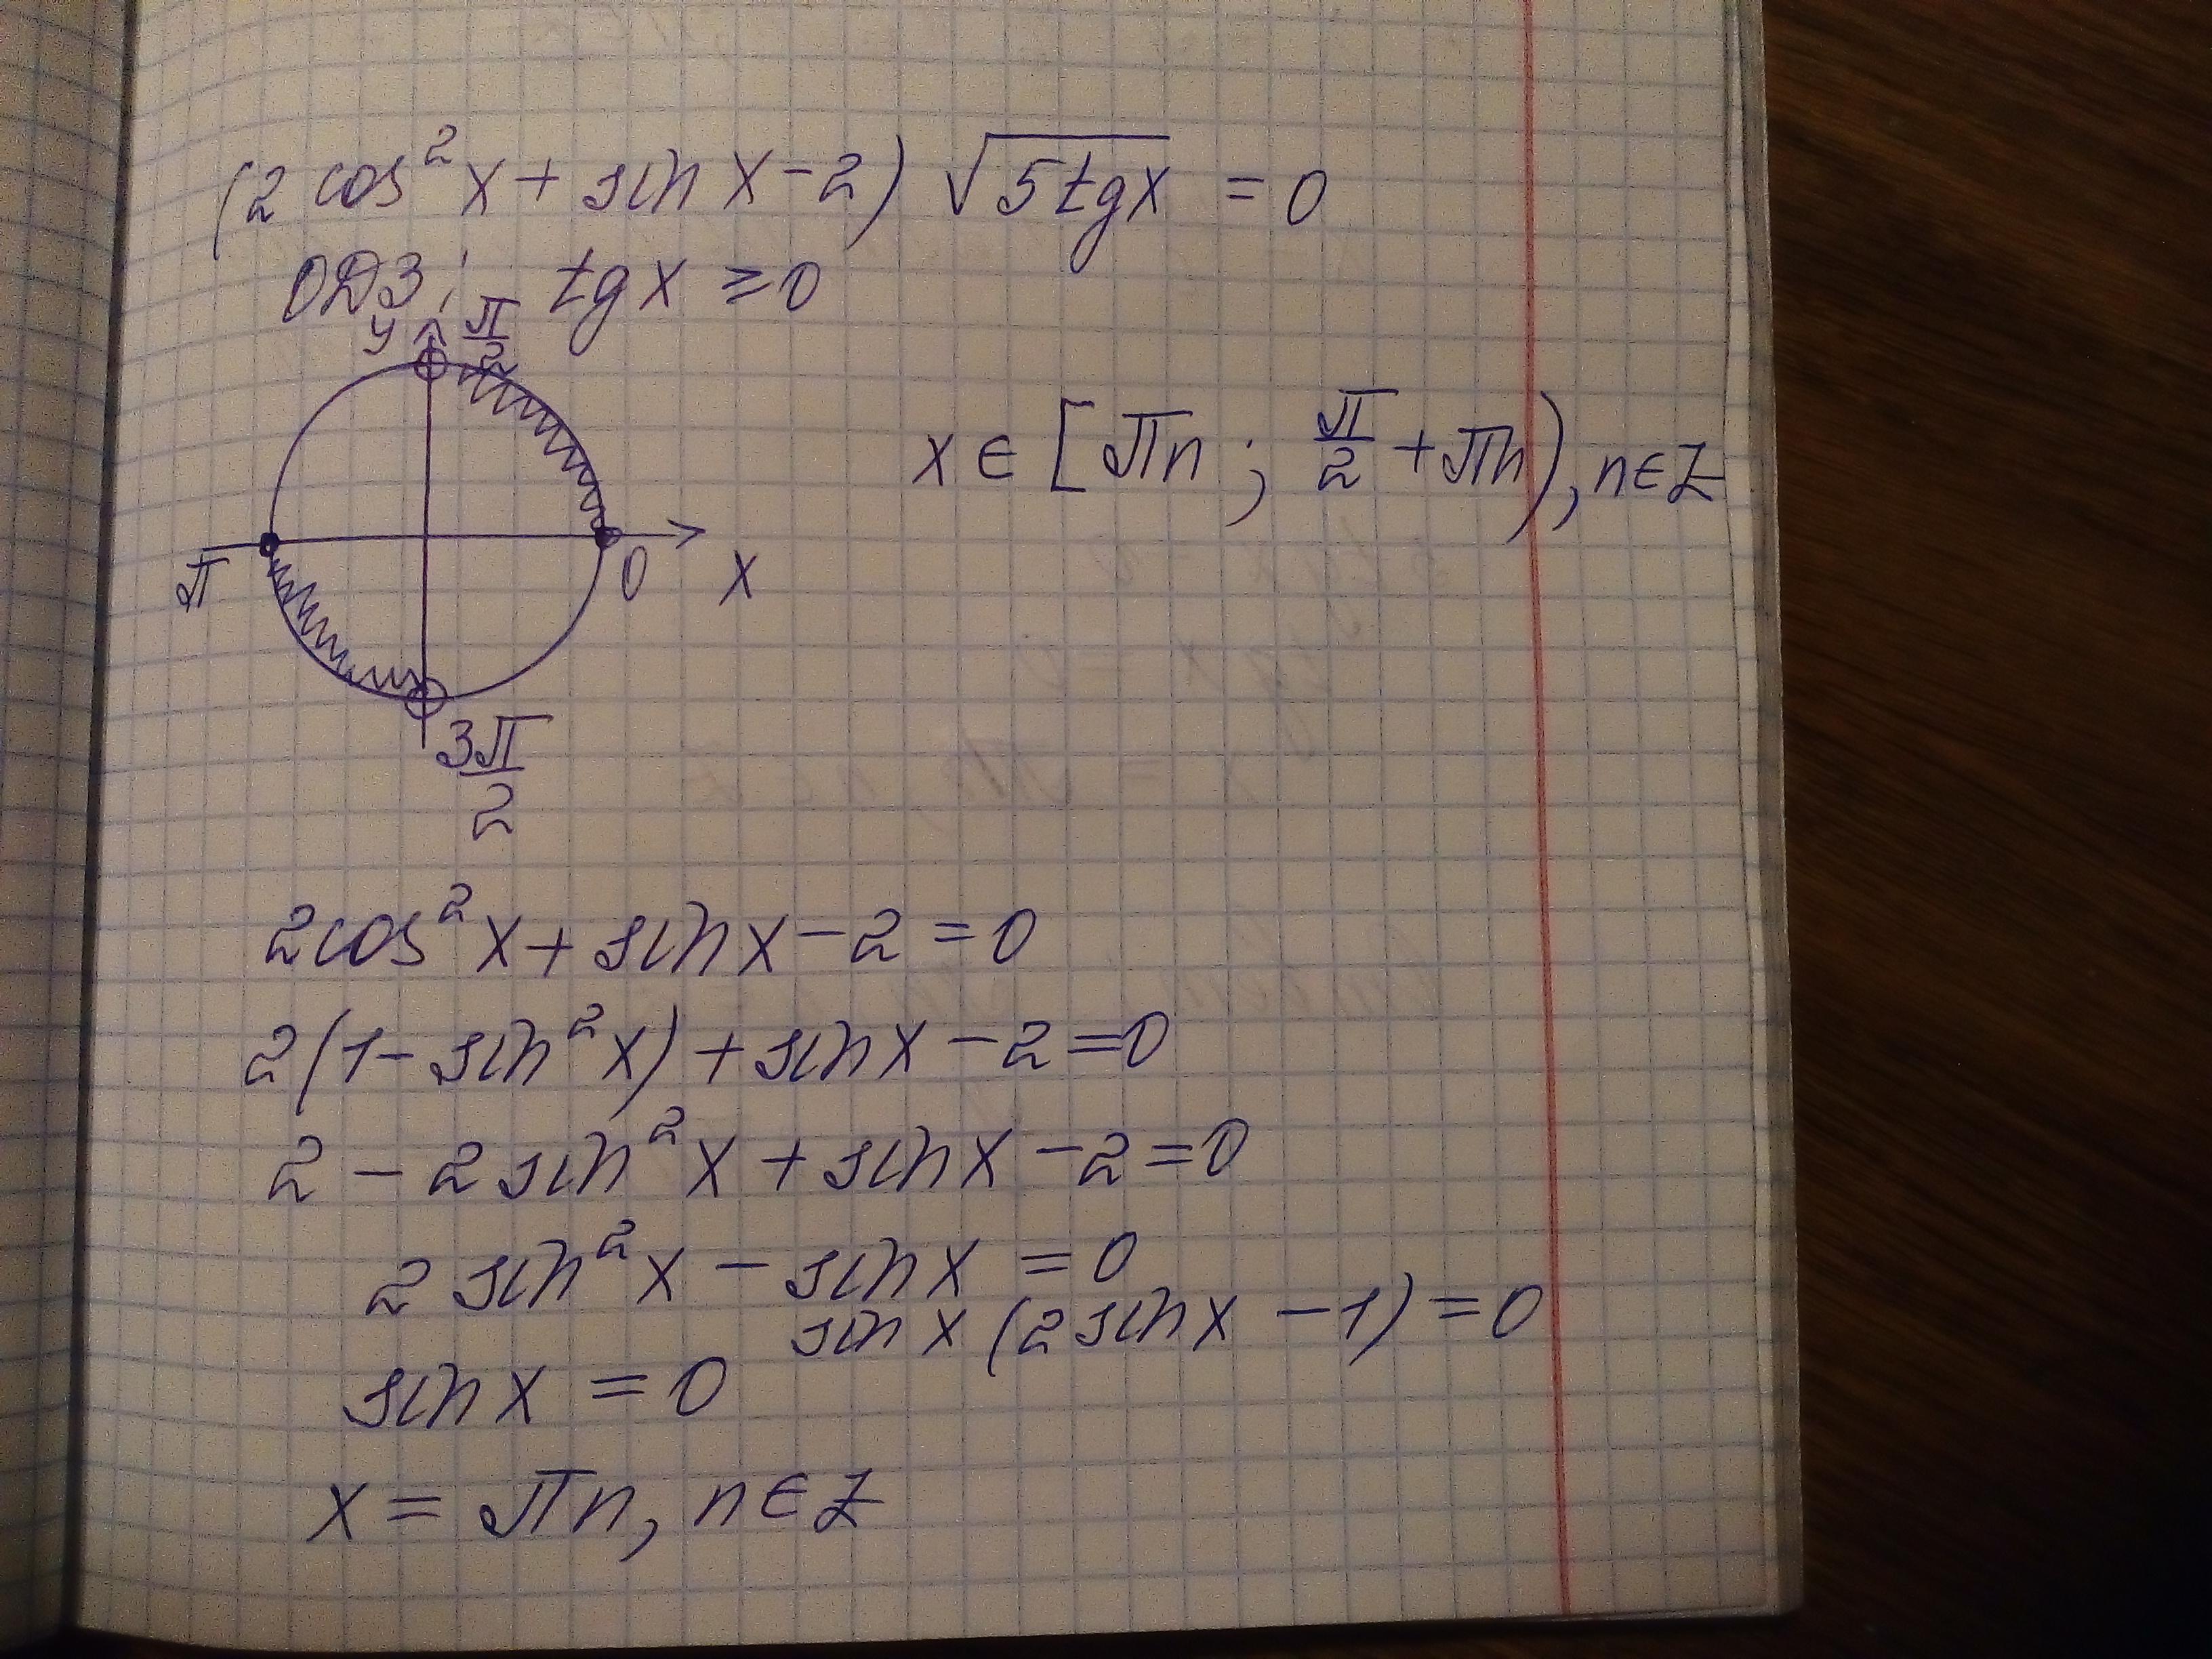 (2 cos²x + sin x - 2) √5tgx = 0
ОДЗ: tgx ≥ 0
y π/2
x ∈ [πn; π/2 + πn), n ∈ Z
π 0 x
3π/2
2cos²x + sinx - 2 = 0
2(1 - sin²x) + sinx - 2 = 0
2 - 2sin²x + sinx - 2 = 0
2 sin²x - sinx = 0
sin x (2sinx - 1) = 0
sinx = 0
x = πn, n ∈ Z